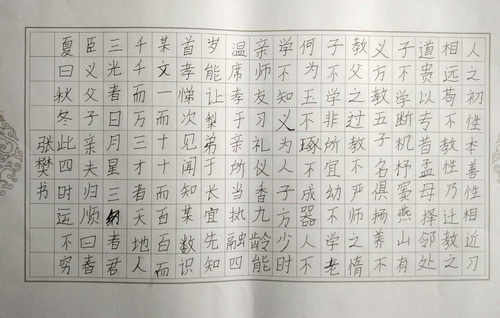 人之初性本善性相近习
相远苟不教性乃迁教之
道贵以专昔孟母择邻处
子不学断机杼窦燕山有
义方教五子名俱扬养不
教父之过教不严师之惰
子不学非所宜幼不学老
何为玉不琢不成器人不
学不知义为人子方少时
亲师友习礼仪香九龄能
温席孝于亲所当执融四
岁能让梨弟于长宜先知
首孝悌次见闻知某数识
某文一而十十而百百而
千千而万三才者天地人
三光者日月星三纲者君
臣义父子亲夫归顺曰春
夏曰秋冬此四时运不穷
张樊书